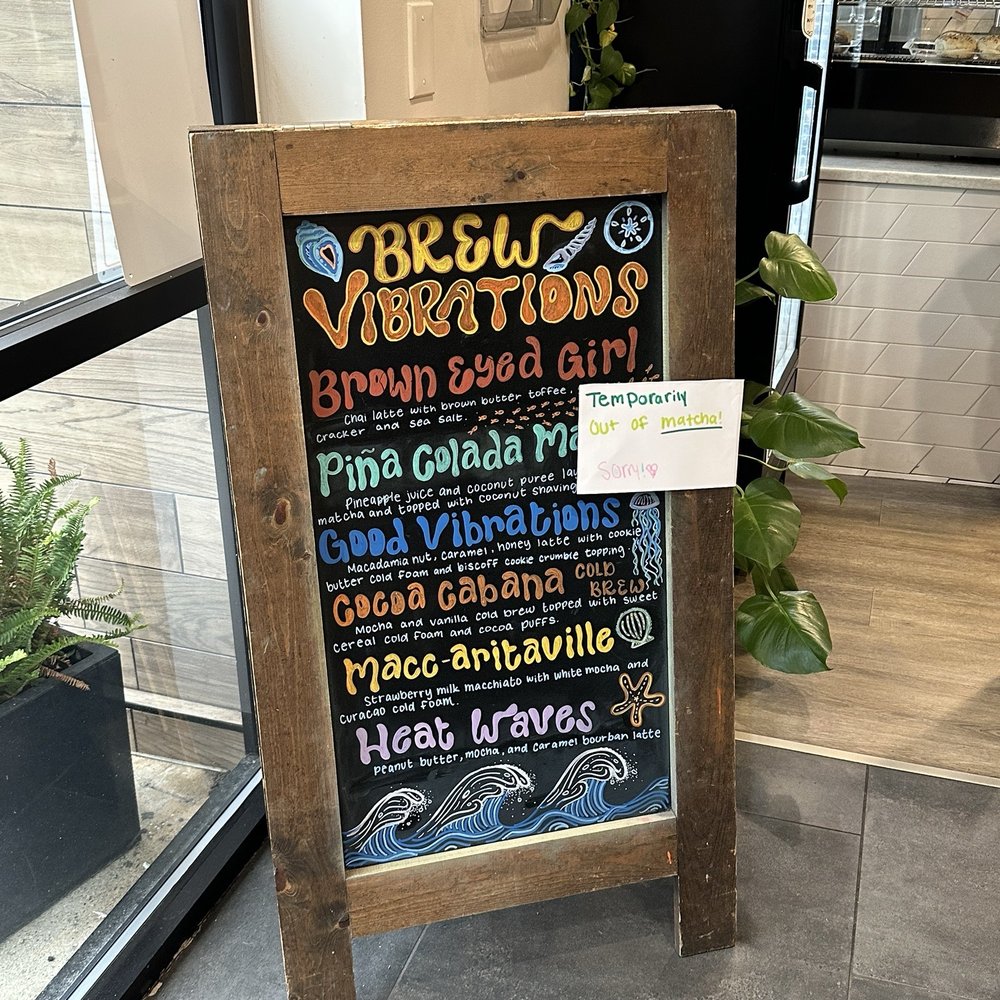 BREW
VIBRATIONS
Brown Eyed Girl
Chai latte with brown butter toffee,
cracker and sea salt.
Piña Colada
Pineapple juice and coconut puree
matcha and topped with coconut
Good Vibrations
Macadamia nut, caramel, honey latte with cookie
butter cold foam and biscoff cookie crumble topping.
Cocoa Cabana COLD
BREW
Mocha and vanilla cold brew topped with sweet
cereal cold foam and cocoa puffs.
Macc-aritaville
Strawberry milk macchiato with white mocha and
curacao cold foam.
Heat Waves
peanut butter, mocha, and caramel bourban latte
Temporarily
out of matcha!
Sorry!